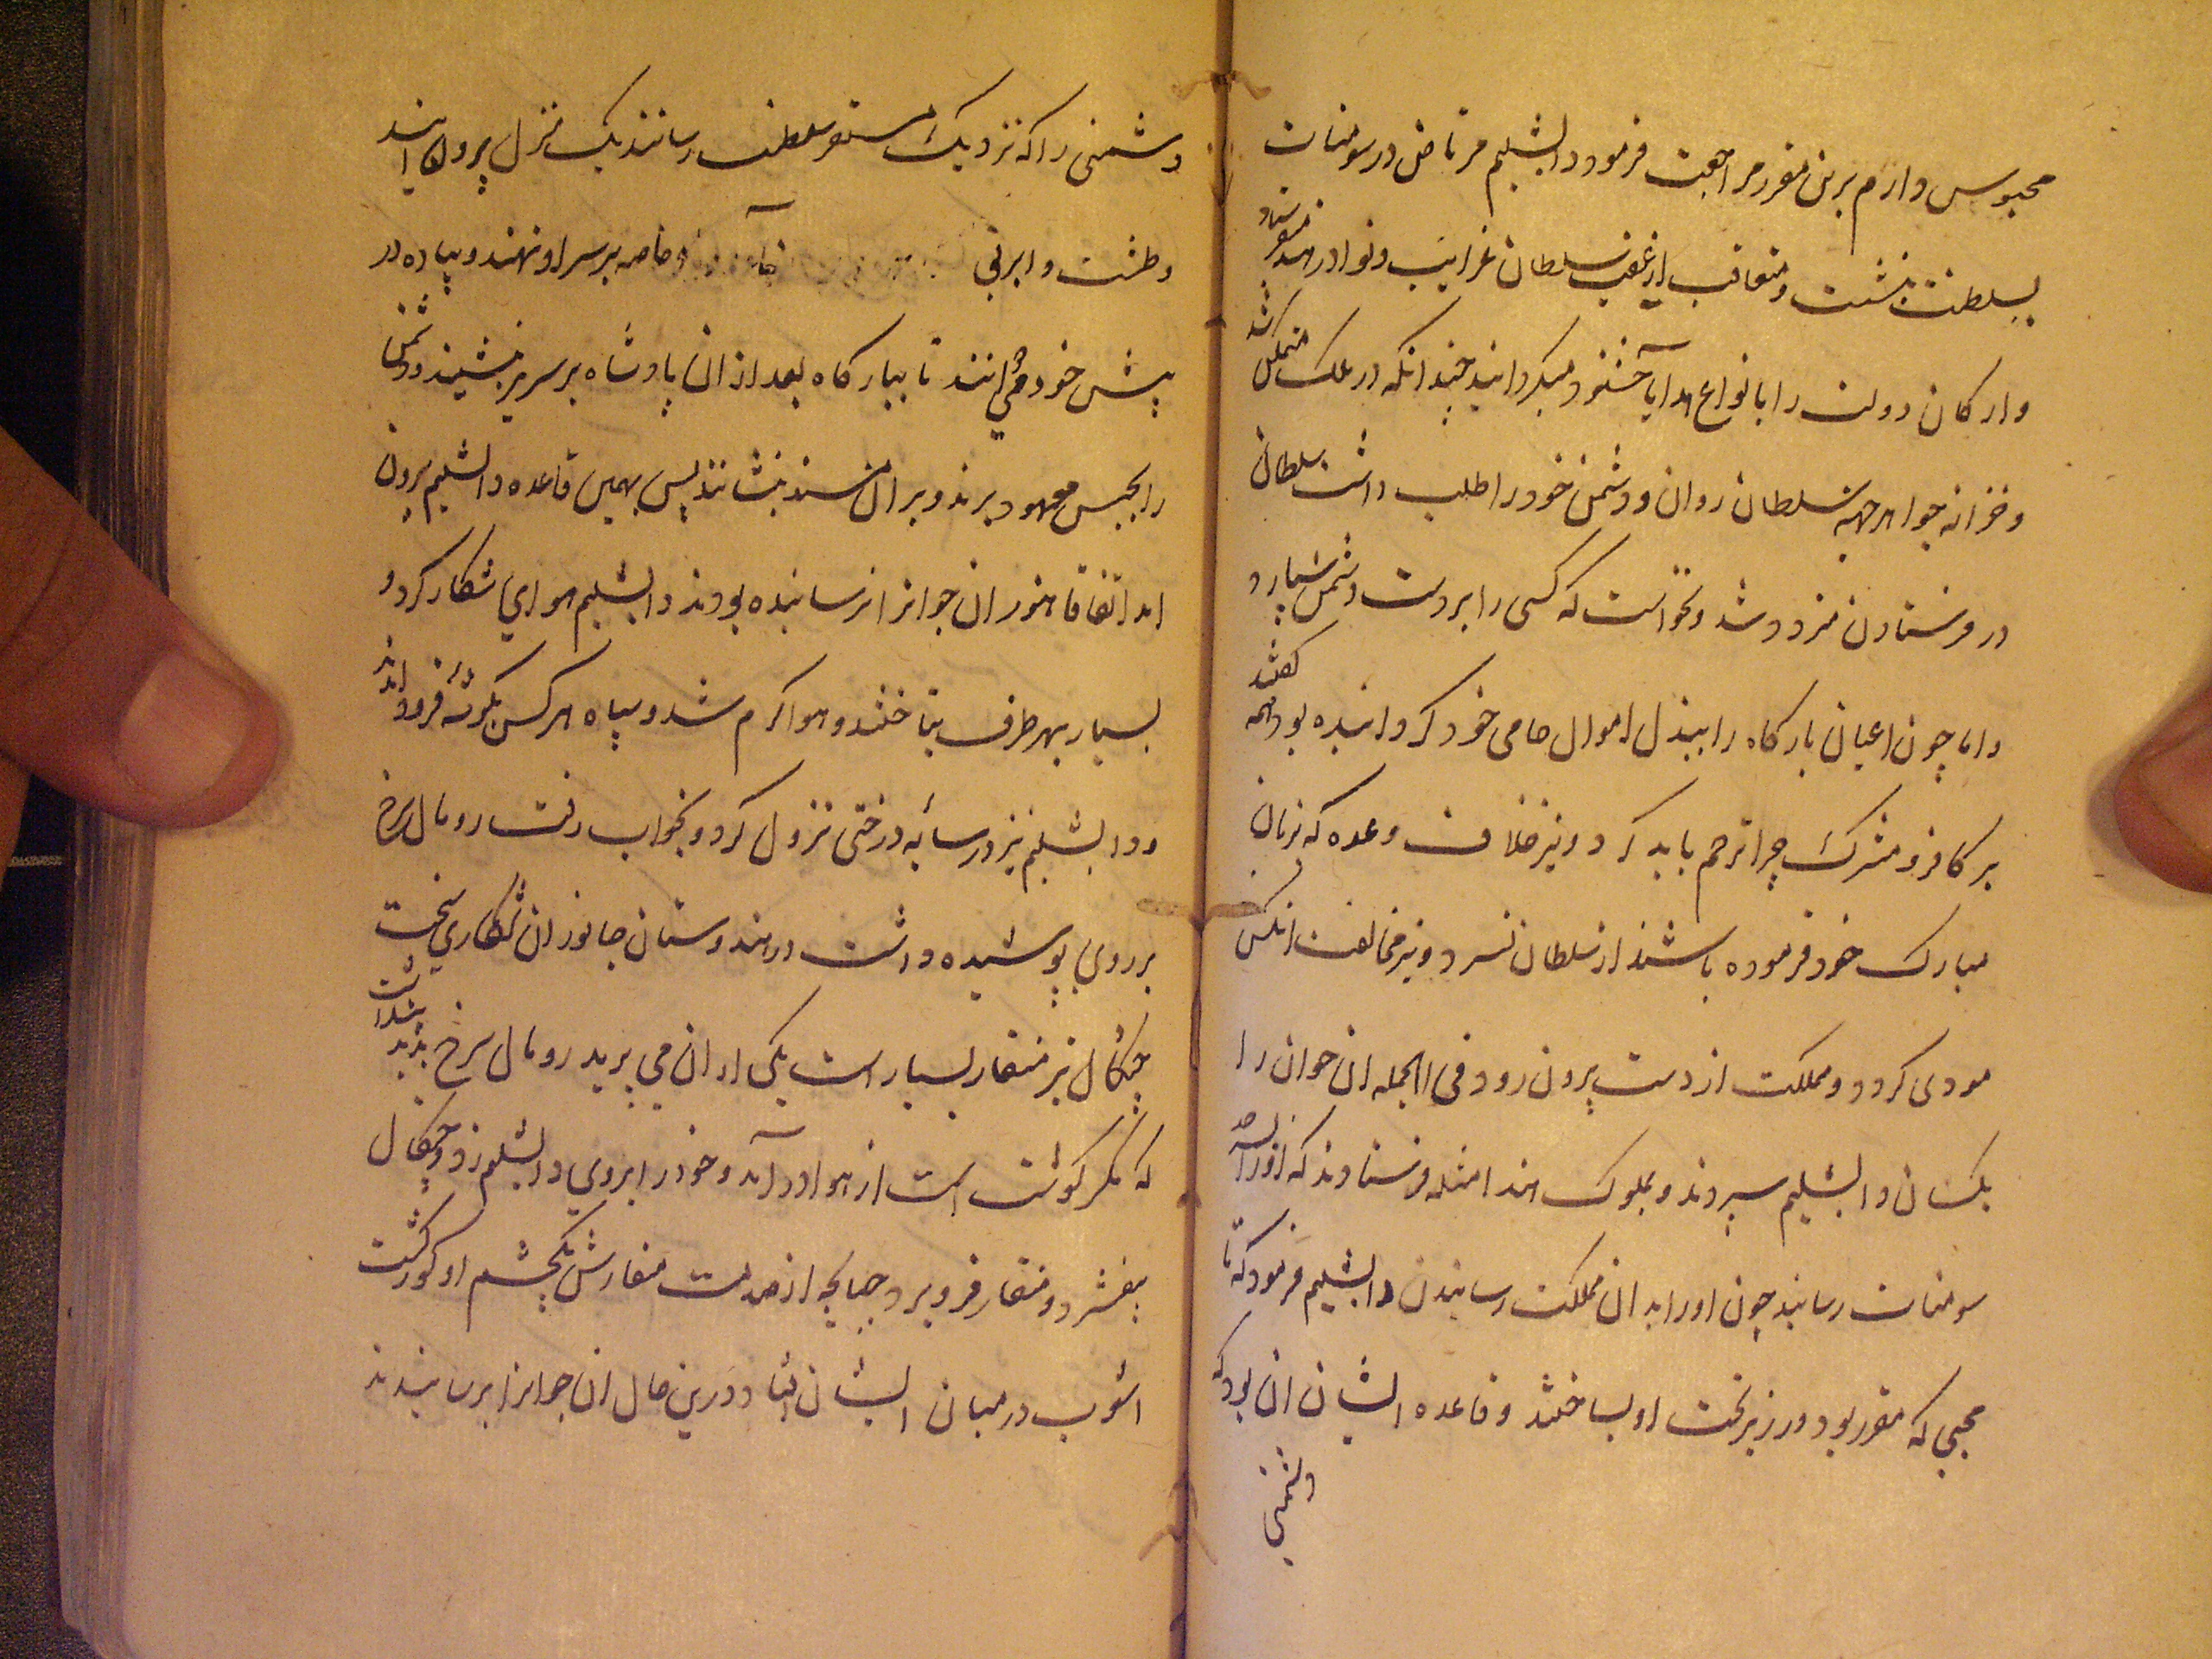 محبوس دارم برین مقرر مراجعت فرمود دابشلیم مرتاض در سومنات
بسلطنت بنشست و متعاقب از عقب سلطان غرایب و نوادر هند میفرستاد
و ارکان دولت را بانواع هدایا خشنود میکردانید چندانکه در ملک متمکن شد
و خزانه جواهر جهة سلطان روان و دشمن خود را طلب داشت سلطان
در فرستادن متردد شد و نخواست که کسی را بدست دشمن سپارد
و اما چون اعیان بارکاه را ببذل اموال حامی خود کردانیده بود همه کفتند
بر کافر و مشرک چرا ترحم باید کرد و نیز خلاف وعده که بزبان
مبارک خود فرموده باشند از سلطان نسزد و نیز مخالفت انکس
مودی کردد و مملکت از دست برون رود فی الجمله ان جوان را
بکسان دابشلیم سپردند و بملوک هند امثله فرستادند که او را بسرحد
سومنات رسانند چون او را بدان مملکت رسانیدن دابشلیم فرمود که تا
محبسی که مقرر بود در زیر تخت او بساختند و قاعده ایشان ان بود که
دشمنی
دشمنی را که نزدیک مستقر سلطنت رسانند یک منزل برون ایند
و طشت و ابریق خاصه بر سر او نهند و پیاده در
پیش خود میدوانند تا ببارکاه بعد از ان پادشاه بر سریر نشیند و دشمن
را بحبس معهود برند و بران مسند بنشانند پس بهمین قاعده دابشلیم برون
امد اتفاقا هنوز ان جوانرا نرسانیده بودند دابشلیم هوای شکار کرد و
بسیار بهر طرف بتاختند و هوا کرم شد و سپاه هر کس بکوشه فرود امدند
و دابشلیم نیز در سایه درختی نزول کرد و بخواب رفت رومال سرخ
بر روی پوشیده داشت در هندوستان جانوران شکاری سخت
چنکال تیز منقار بسیار است یکی از ان می پرید رومال سرخ بدید پنداشت
که مکر کوشت است از هوا درآمد و خود را بروی دابشلیم زد و چنکال
بیفشرد و منقار فرو برد چنانچه از صدمت منقارش یکچشم او کور کشت
اشوب در میان ایشان افتاد و درین حال ان جوانرا برسانیدند